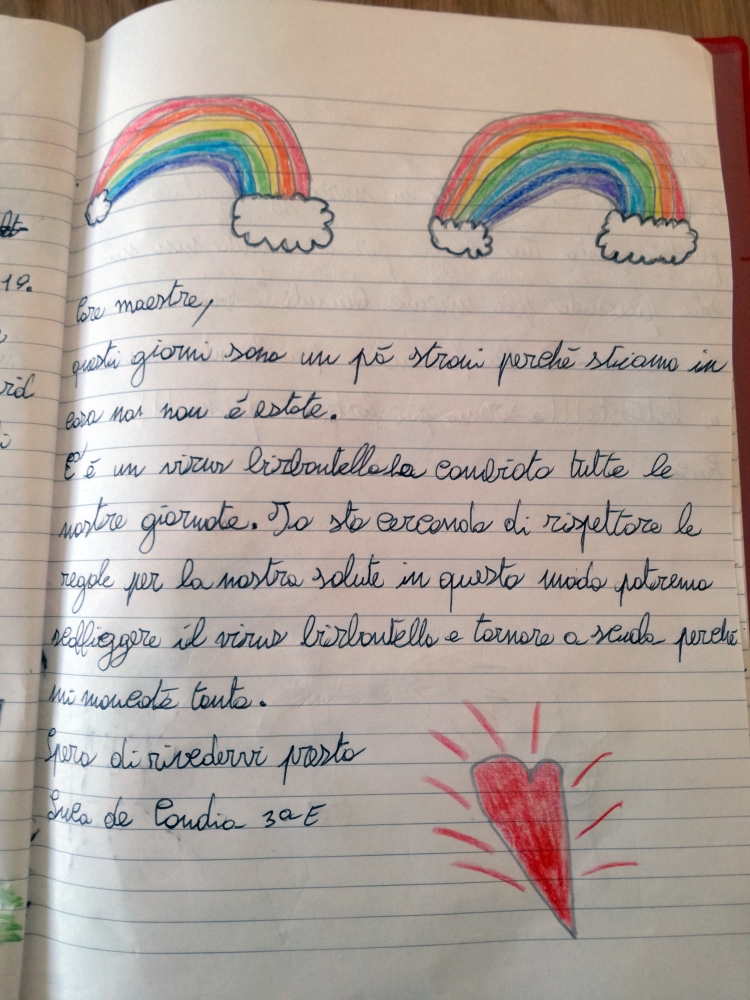 Care maestre,
questi giorni sono un pó strani perché stiamo in
casa ma non é estate.
C'é un virus birbantello ha cambiato tutte le
19.
nostre giornate. Io sto cercando di rispettare le
regole per la nostra salute in questo modo potremo
scoffiggere il virus birbantello e tornare a scuola perché
mi mancate tanto.
Spero di rivedervi presto
Luca de Candia 3a E